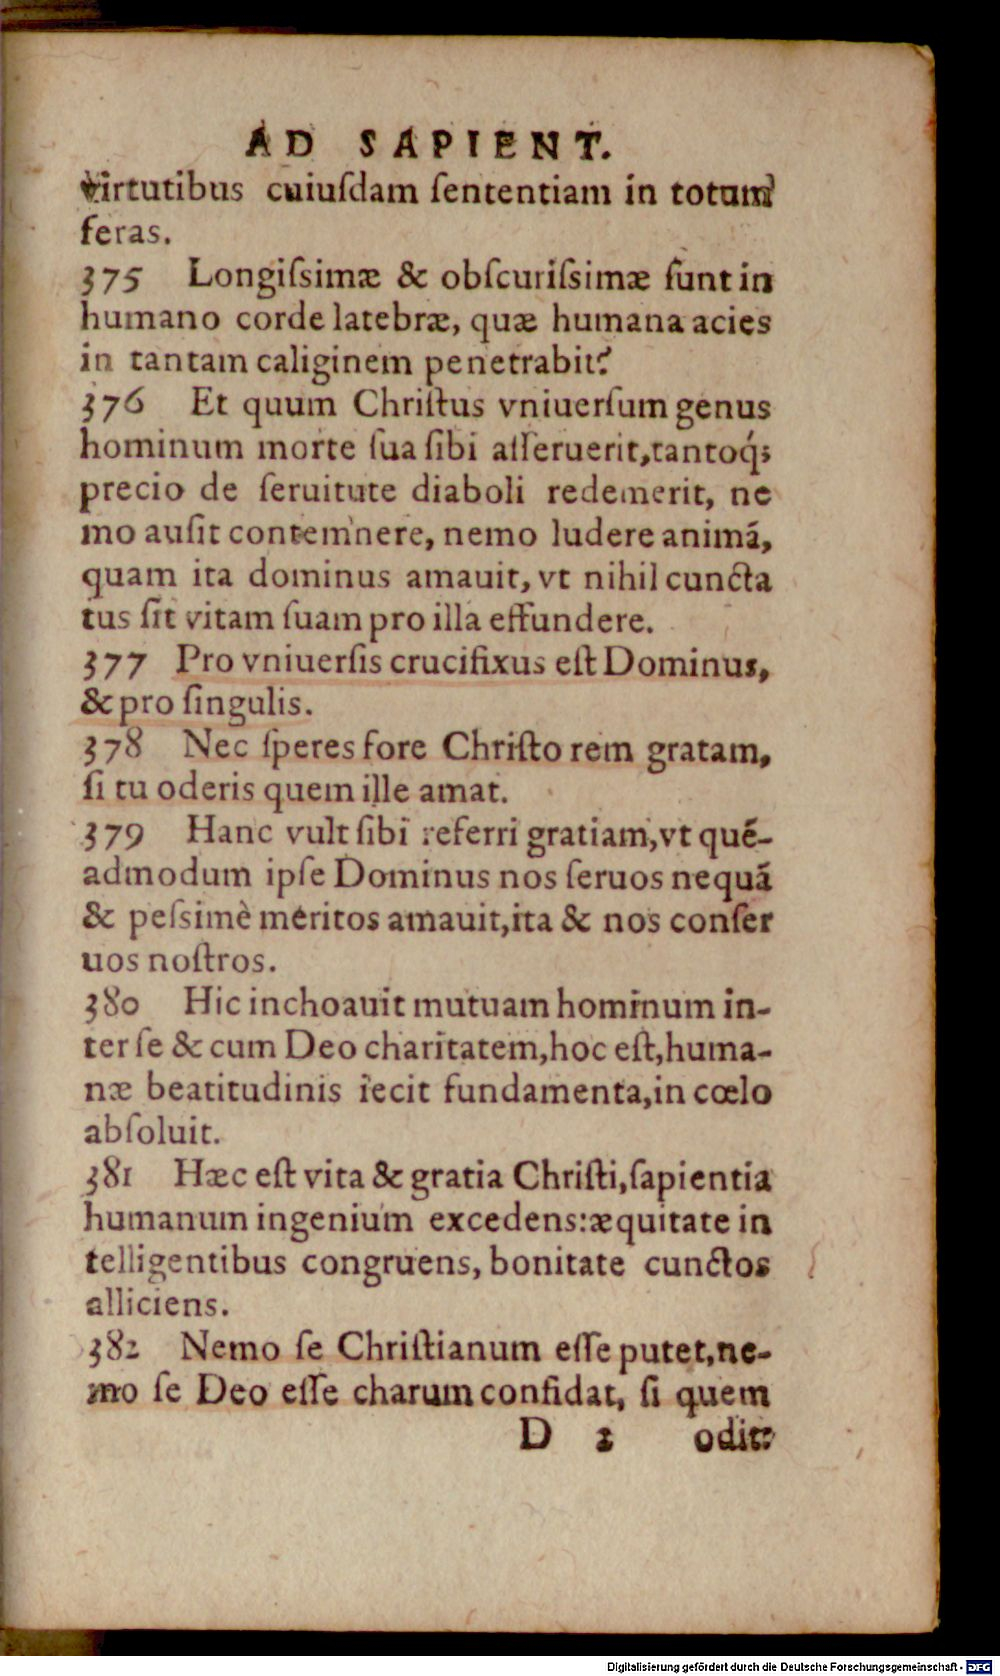 AD SAPIENT.
virtutibus cuiuſdam ſententiam in totum
feras.
375 Longiſsimæ & obſcuriſsimæ ſunt in
humano corde latebræ, quæ humana acies
in tantam caliginem penetrabit?
376 Et quum Chriſtus vniuerſum genus
hominum morte ſua ſibi aſſeruerit,tantoq́;
precio de ſeruitute diaboli redemerit, ne
mo auſit contemnere, nemo ludere animã,
quam ita dominus amauit, vt nihil cuncta
tus ſit vitam ſuam pro illa effundere.
377 Pro vniuerſis crucifixus eſt Dominus,
& pro ſingulis.
378 Nec ſperes fore Chriſto rem gratam,
ſi tu oderis quem ille amat.
379 Hanc vult ſibi referri gratiam,vt quẽ-
admodum ipſe Dominus nos ſeruos nequã
& peſsimè meritos amauit,ita & nos conſer
uos noſtros.
380 Hic inchoauit mutuam hominum in-
ter ſe & cum Deo charitatem,hoc eſt,huma-
næ beatitudinis iecit fundamenta,in cœlo
abſoluit.
381 Hæc eſt vita & gratia Chriſti,ſapientia
humanum ingenium excedens:æquitate in
telligentibus congruens, bonitate cunctos
alliciens.
382 Nemo ſe Chriſtianum eſſe putet,ne-
mo ſe Deo eſſe charum confidat, ſi quem
D 2 odit:
Digitalisierung gefördert durch die Deutsche Forschungsgemeinschaft - DFG